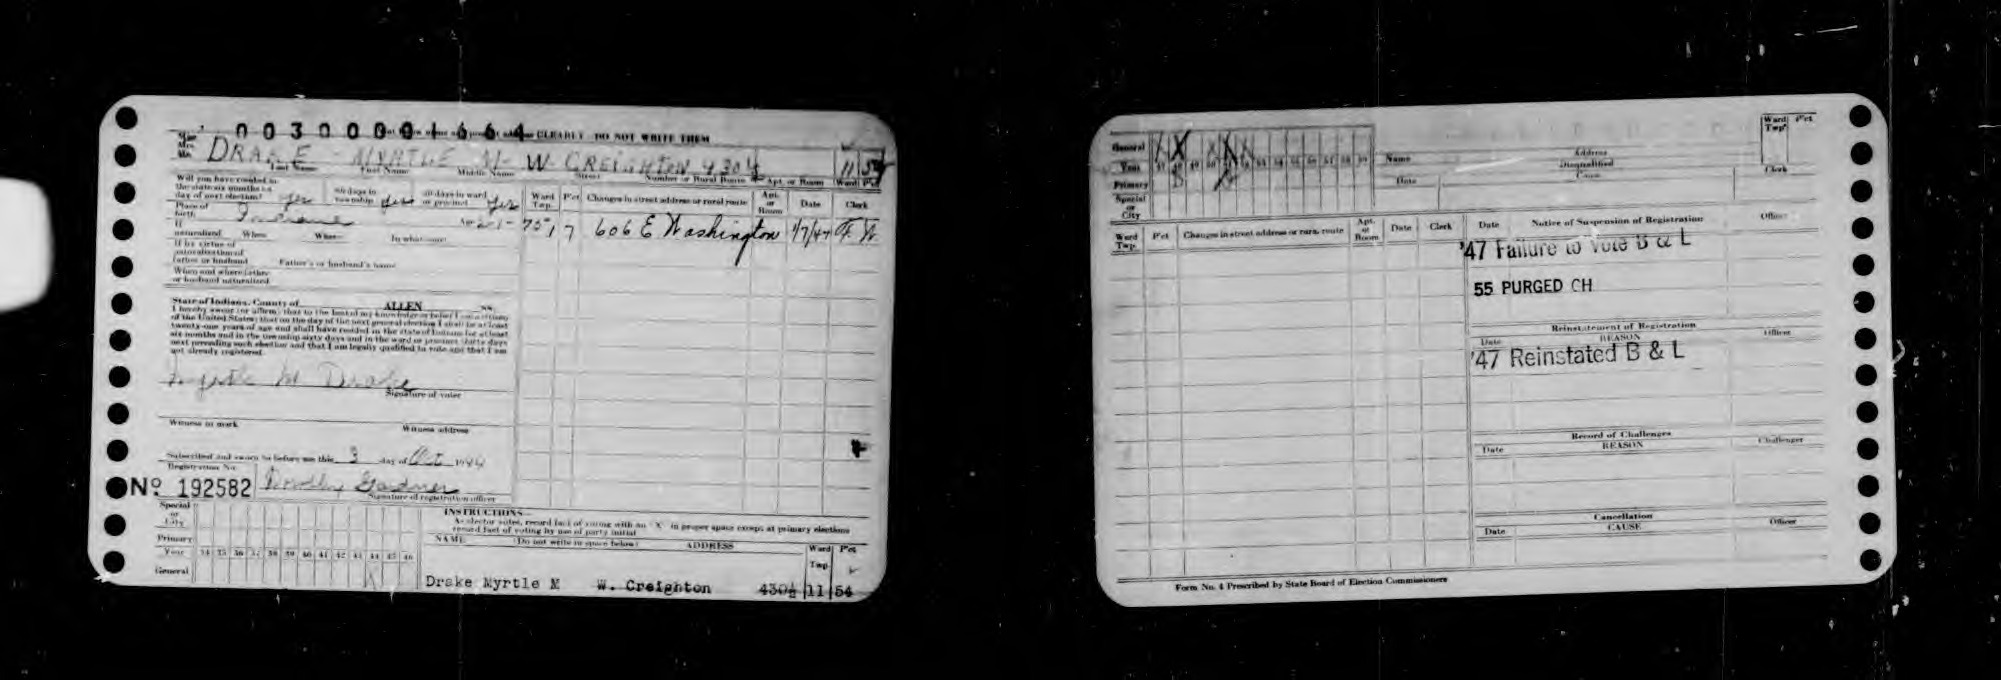 0030001664 CLEARLY DO NOT WRITE THEM
Mrs.
DRAKE - MYRTLE M - W CREIGHTON 430½ 11 54
Last Name First Name Middle Name Street Number or Rural Route Apt. or Room Ward Pct
Will you have resided in
the state six months on
day of next election? Yes 60 days in township Yes 30 days in ward or precinct Yes
Ward Twp. Pct Changes in street address or rural route Apt. or Room Date Clerk
Place of birth Indiana
1 7 606 E Washington 1/7/47 F W
If naturalized When Where In what court
If by virtue of
naturalization of
father or husband Father's or husband's name
When and where father
or husband naturalized
State of Indiana, County of ALLEN ss.
I hereby swear (or affirm) that to the best of my knowledge or belief I am a citizen
of the United States; that on the day of the next general election I shall be at least
twenty-one years of age and shall have resided in the state of Indiana for at least
six months and in the township sixty days and in the ward or precinct thirty days
next preceding such election and that I am legally qualified to vote and that I am
not already registered.
Myrtle M Drake
Signature of voter
Witness to mark Witness address
Subscribed and sworn to before me this 3 day of Oct 1944
Registration No.
No 192582 Dorothy Gardner
Signature of registration officer
Special
or
City
INSTRUCTIONS
As elector votes, record fact of voting with an "X" in proper space except at primary elections
record fact of voting by use of party initial
Primary
NAME (Do not write in space below) ADDRESS Ward Twp. Pct
Year 34 35 36 37 38 39 40 41 42 43 44 45 46
General X
Drake Myrtle M W. Creighton 430½ 11 54
General X X X X
Year 47 48 49 50 51 52 53 54 55 56 57 58 59
Primary
Special
or
City
Name Address Ward Twp. Pct
Disqualified
Date Cause Clerk
Ward Twp. Pct Changes in street address or rural route Apt. or Room Date Clerk
Date Notice of Suspension of Registration Officer
'47 Failure to Vote B & L
55 PURGED CH
Reinstatement of Registration
Date REASON Officer
'47 Reinstated B & L
Record of Challenges
Date REASON Challenger
Cancellation
Date CAUSE Officer
Form No. 4 Prescribed by State Board of Election Commissioners